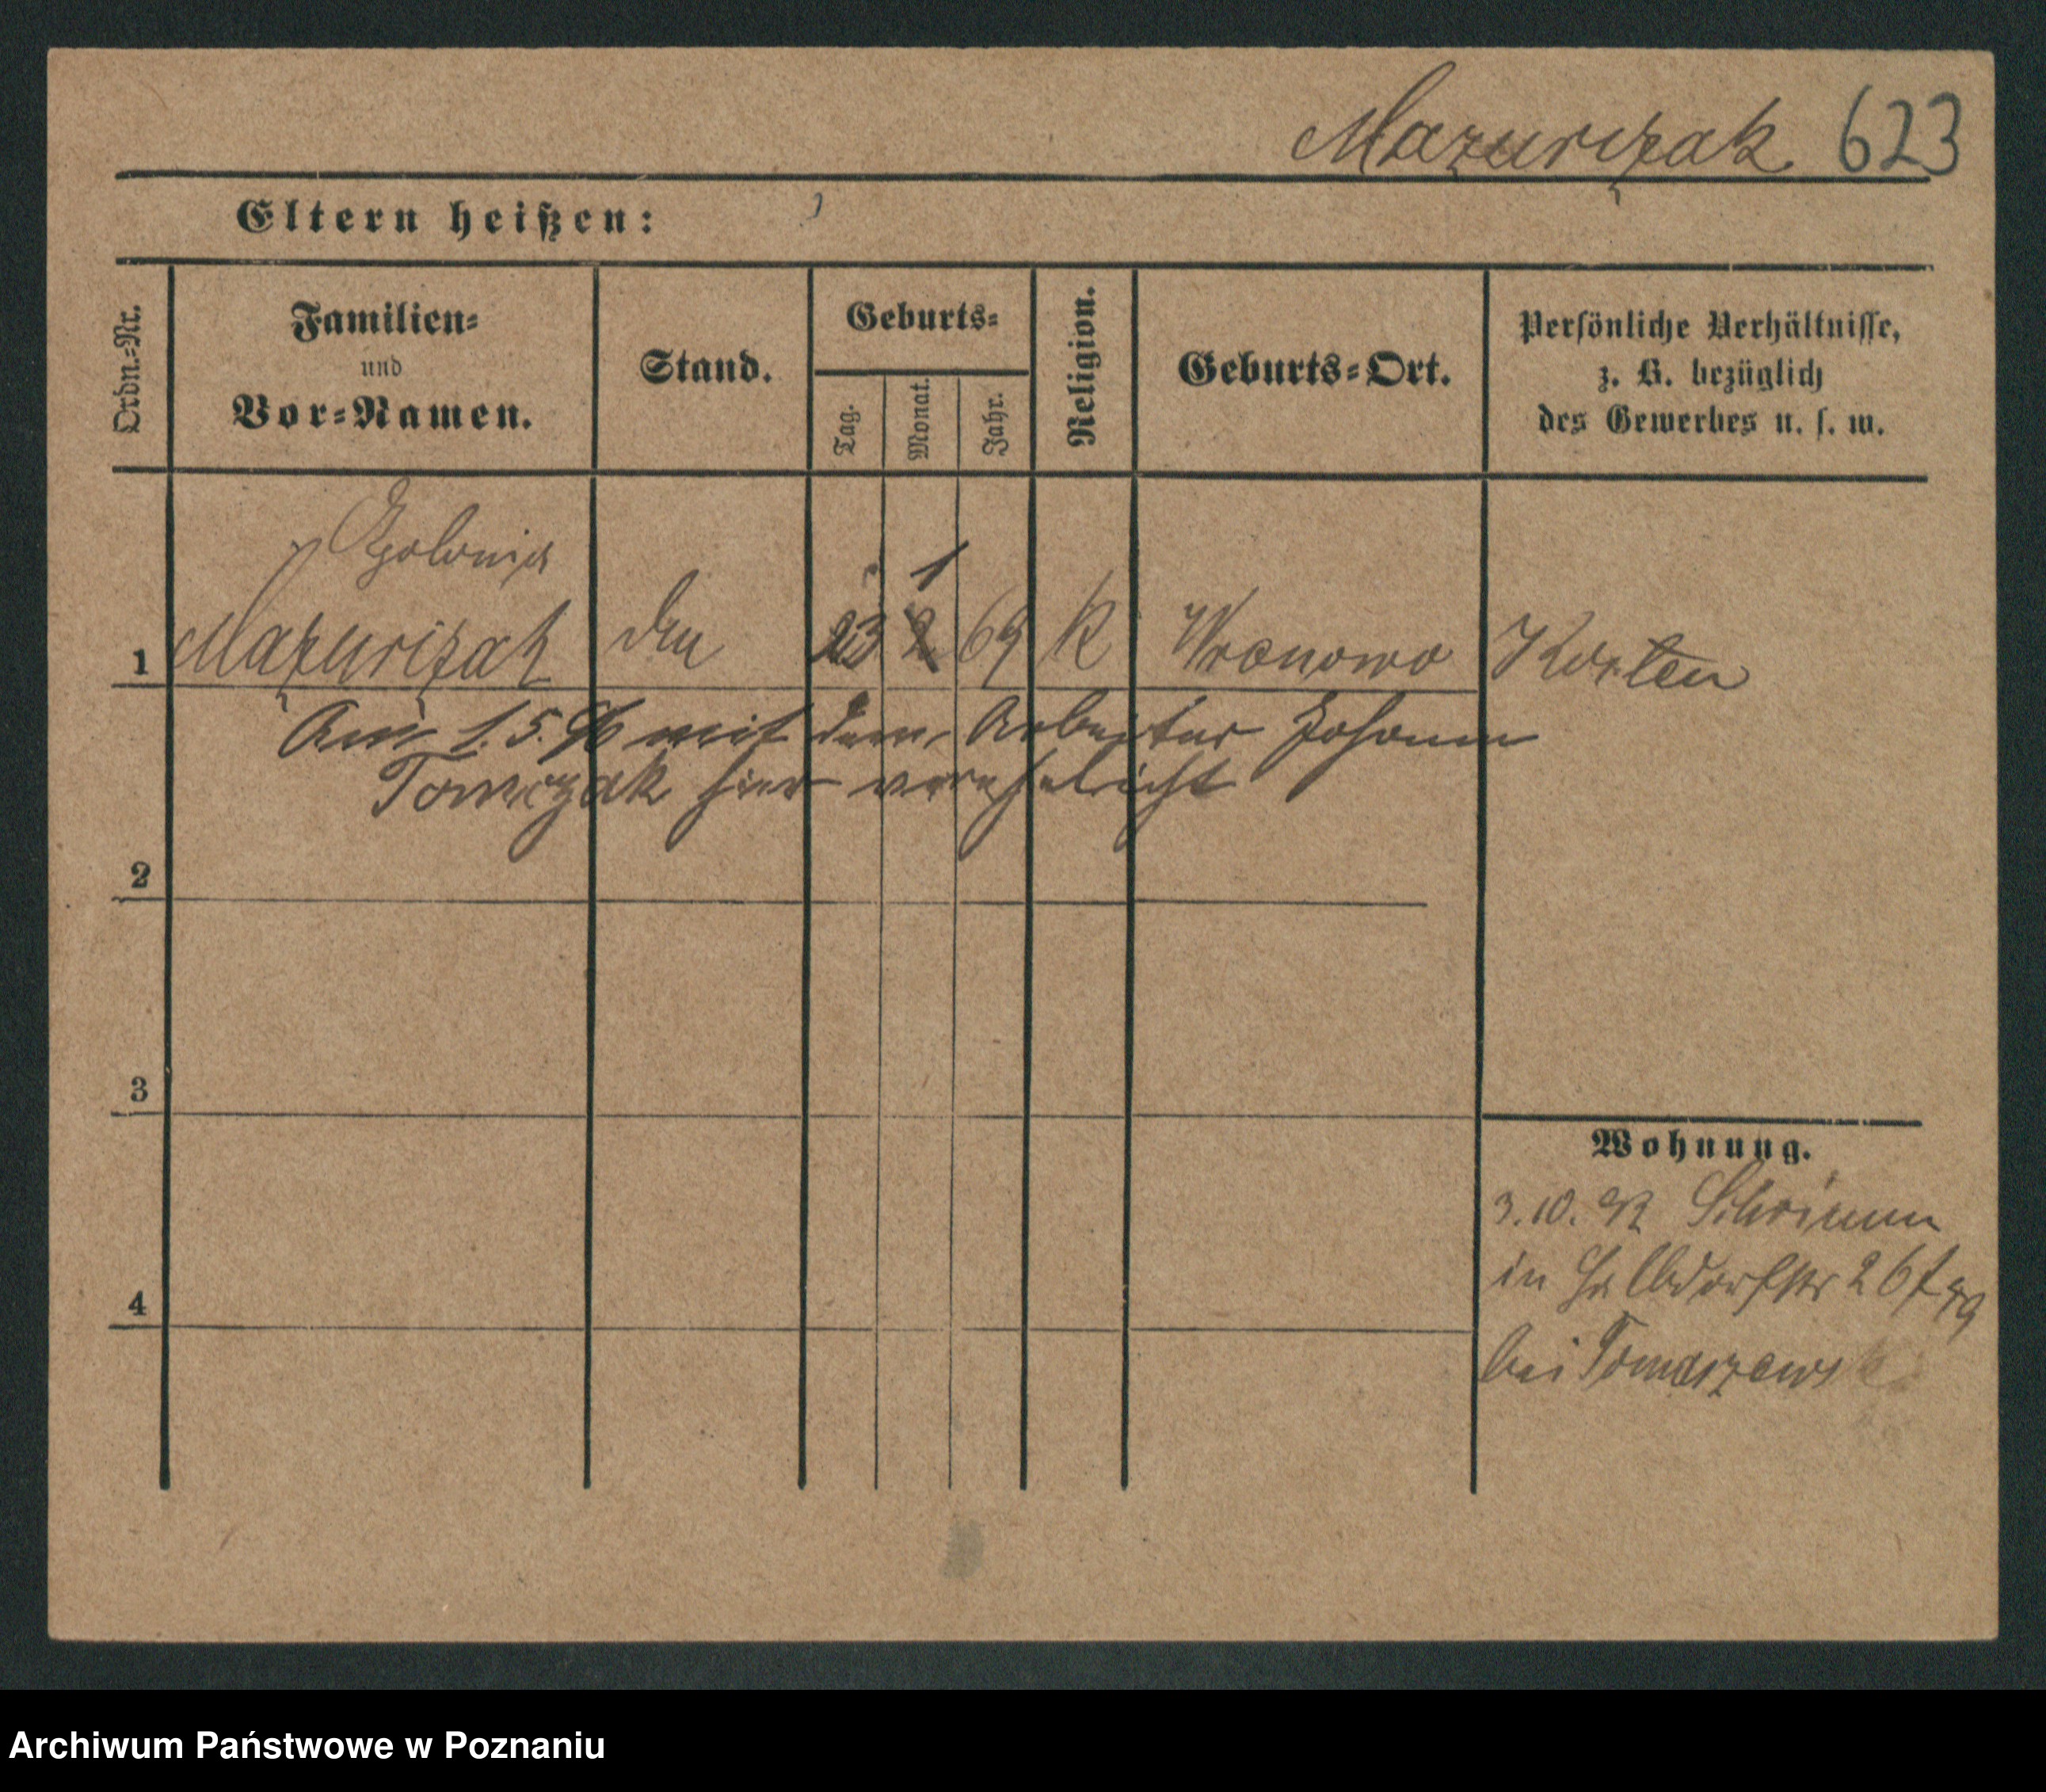 Mazurczak 623
Eltern heißen:
Ordn.-Nr.
Familien-
und
Vor-Namen.
Stand.
Geburts-
Tag.
Monat.
Jahr.
Religion.
Geburts-Ort.
Persönliche Verhältnisse,
z. B. bezüglich
des Gewerbes u. s. w.
Apolonia
1
1 Mazurczak 23 2 69 K Wronowo Kosten
Am 1.5.96 mit dem Arbeiter Johann
Tomczak hier verehelicht
2
3
4
Wohnung.
3.10.92 Schrimm
in Halbdorfstr 26
bei Tomaszewsk
Archiwum Państwowe w Poznaniu